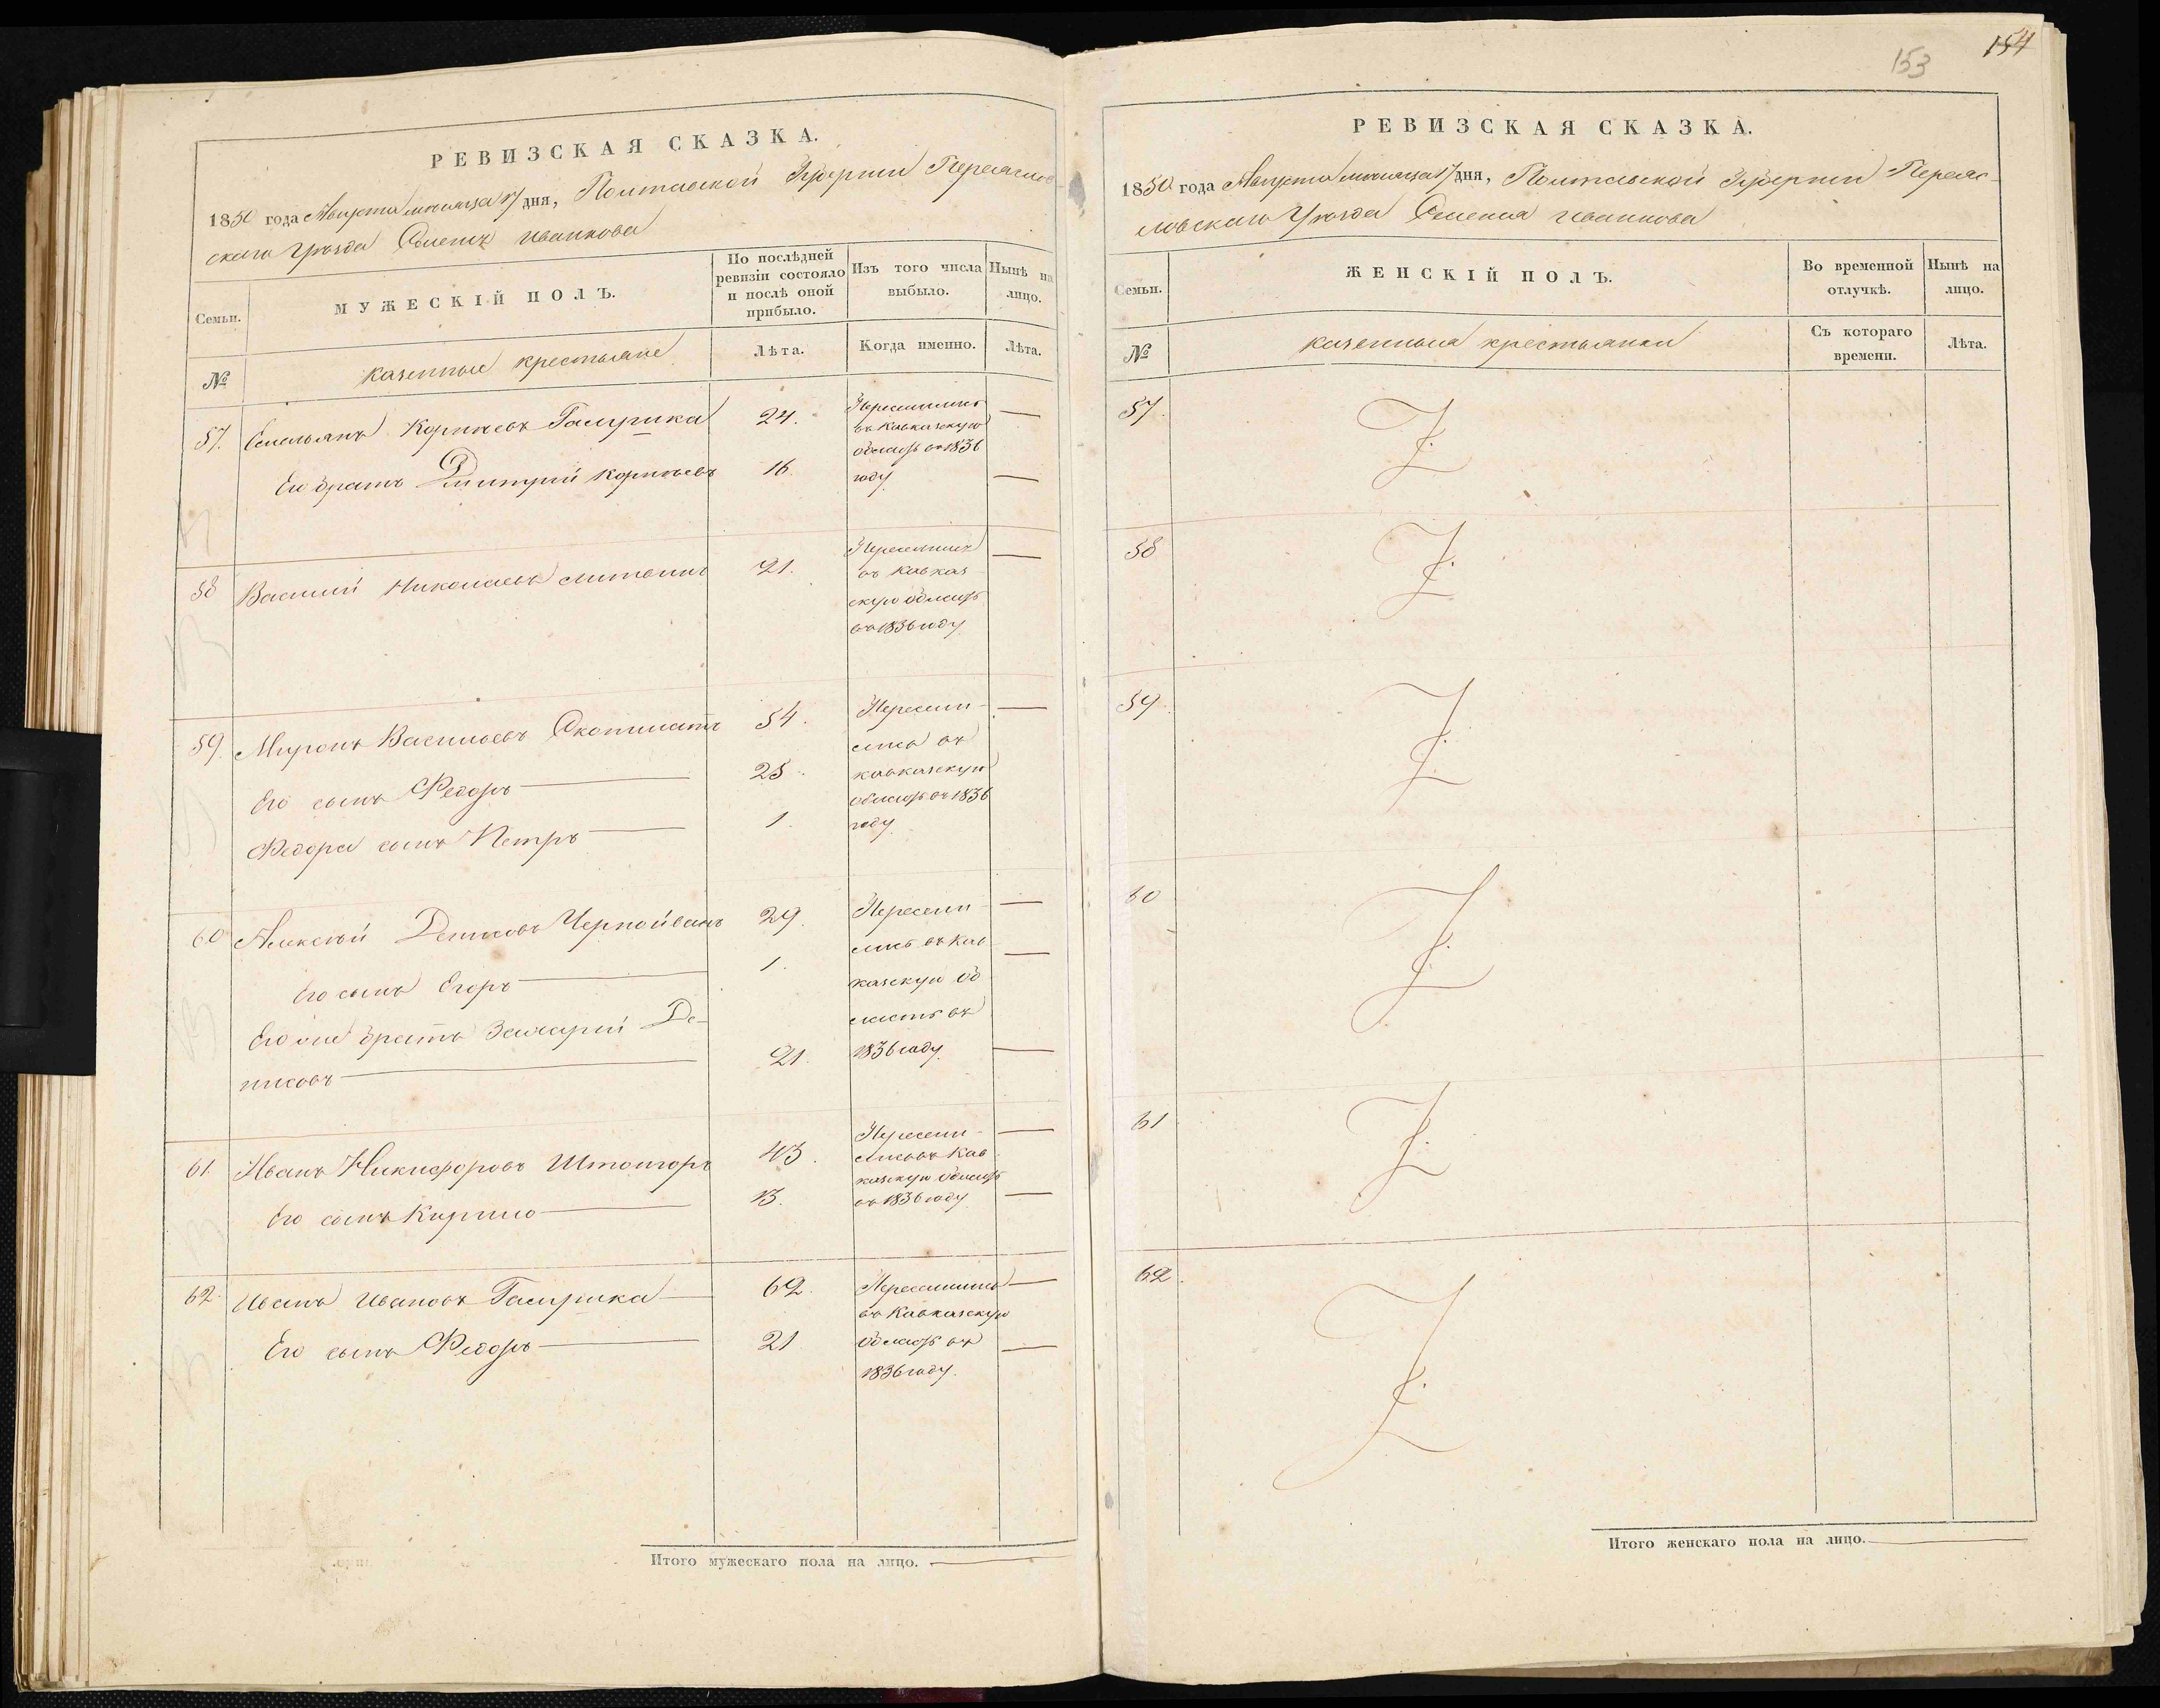 153
154
РЕВИЗСКАЯ СКАЗКА.
1850 года Августа месяца 17 дня, Полтавской Губернии Переяслов
скаго Уезда Села Иванкова
Семьи.
МУЖЕСКІЙ ПОЛЪ.
По послѣдней
ревизіи состояло
и послѣ оной
прибыло.
Изъ того числа
выбыло.
Нынѣ на
лицо.
№
казенные крестьяне
Лѣта.
Когда именно.
Лѣта.
57.
Емельянъ Корнѣевъ
24.
Переселились
въ Кавказскую
область въ 1836
году
—
Его братъ Дмитрий Корнѣевъ
16.
—
58
Василий Николаевъ
21.
Переселился
въ Кавказ
скую область
въ 1836 году
—
59.
Миронъ Васильевъ
54.
Пересели-
лись въ
кавказскую
область въ 1836
году.
—
Его сынъ Федоръ —
25.
Федора сынъ Петръ —
1.
60
Алексѣй Денисовъ Чернойванъ
29.
Пересели-
лись въ Кав
казскую об
ласть въ
1836 году.
—
Его сынъ Егоръ —
1.
—
Его же братъ Захарий Де-
нисовъ —
21.
—
61.
Иванъ Никифоровъ
43.
Пересели-
лись въ Кав
казскую область
въ 1836 году
—
Его сынъ Кирило —
13.
—
62.
Иванъ Ивановъ
62.
Переселились
въ Кавказскую
область въ
1836 году.
—
Его сынъ Федоръ —
21
—
Итого мужескаго пола на лицо. —
РЕВИЗСКАЯ СКАЗКА.
1850 года Августа месяца 17 дня, Полтавской Губернии Переяс-
ловскаго Уезда Села Иванкова
Семьи.
ЖЕНСКІЙ ПОЛЪ.
Во временной
отлучкѣ.
Нынѣ на
лицо.
№
казенныя крестьянки
Съ котораго
времени.
Лѣта.
57.
58
59.
60
61
62.
Итого женскаго пола на лицо. —